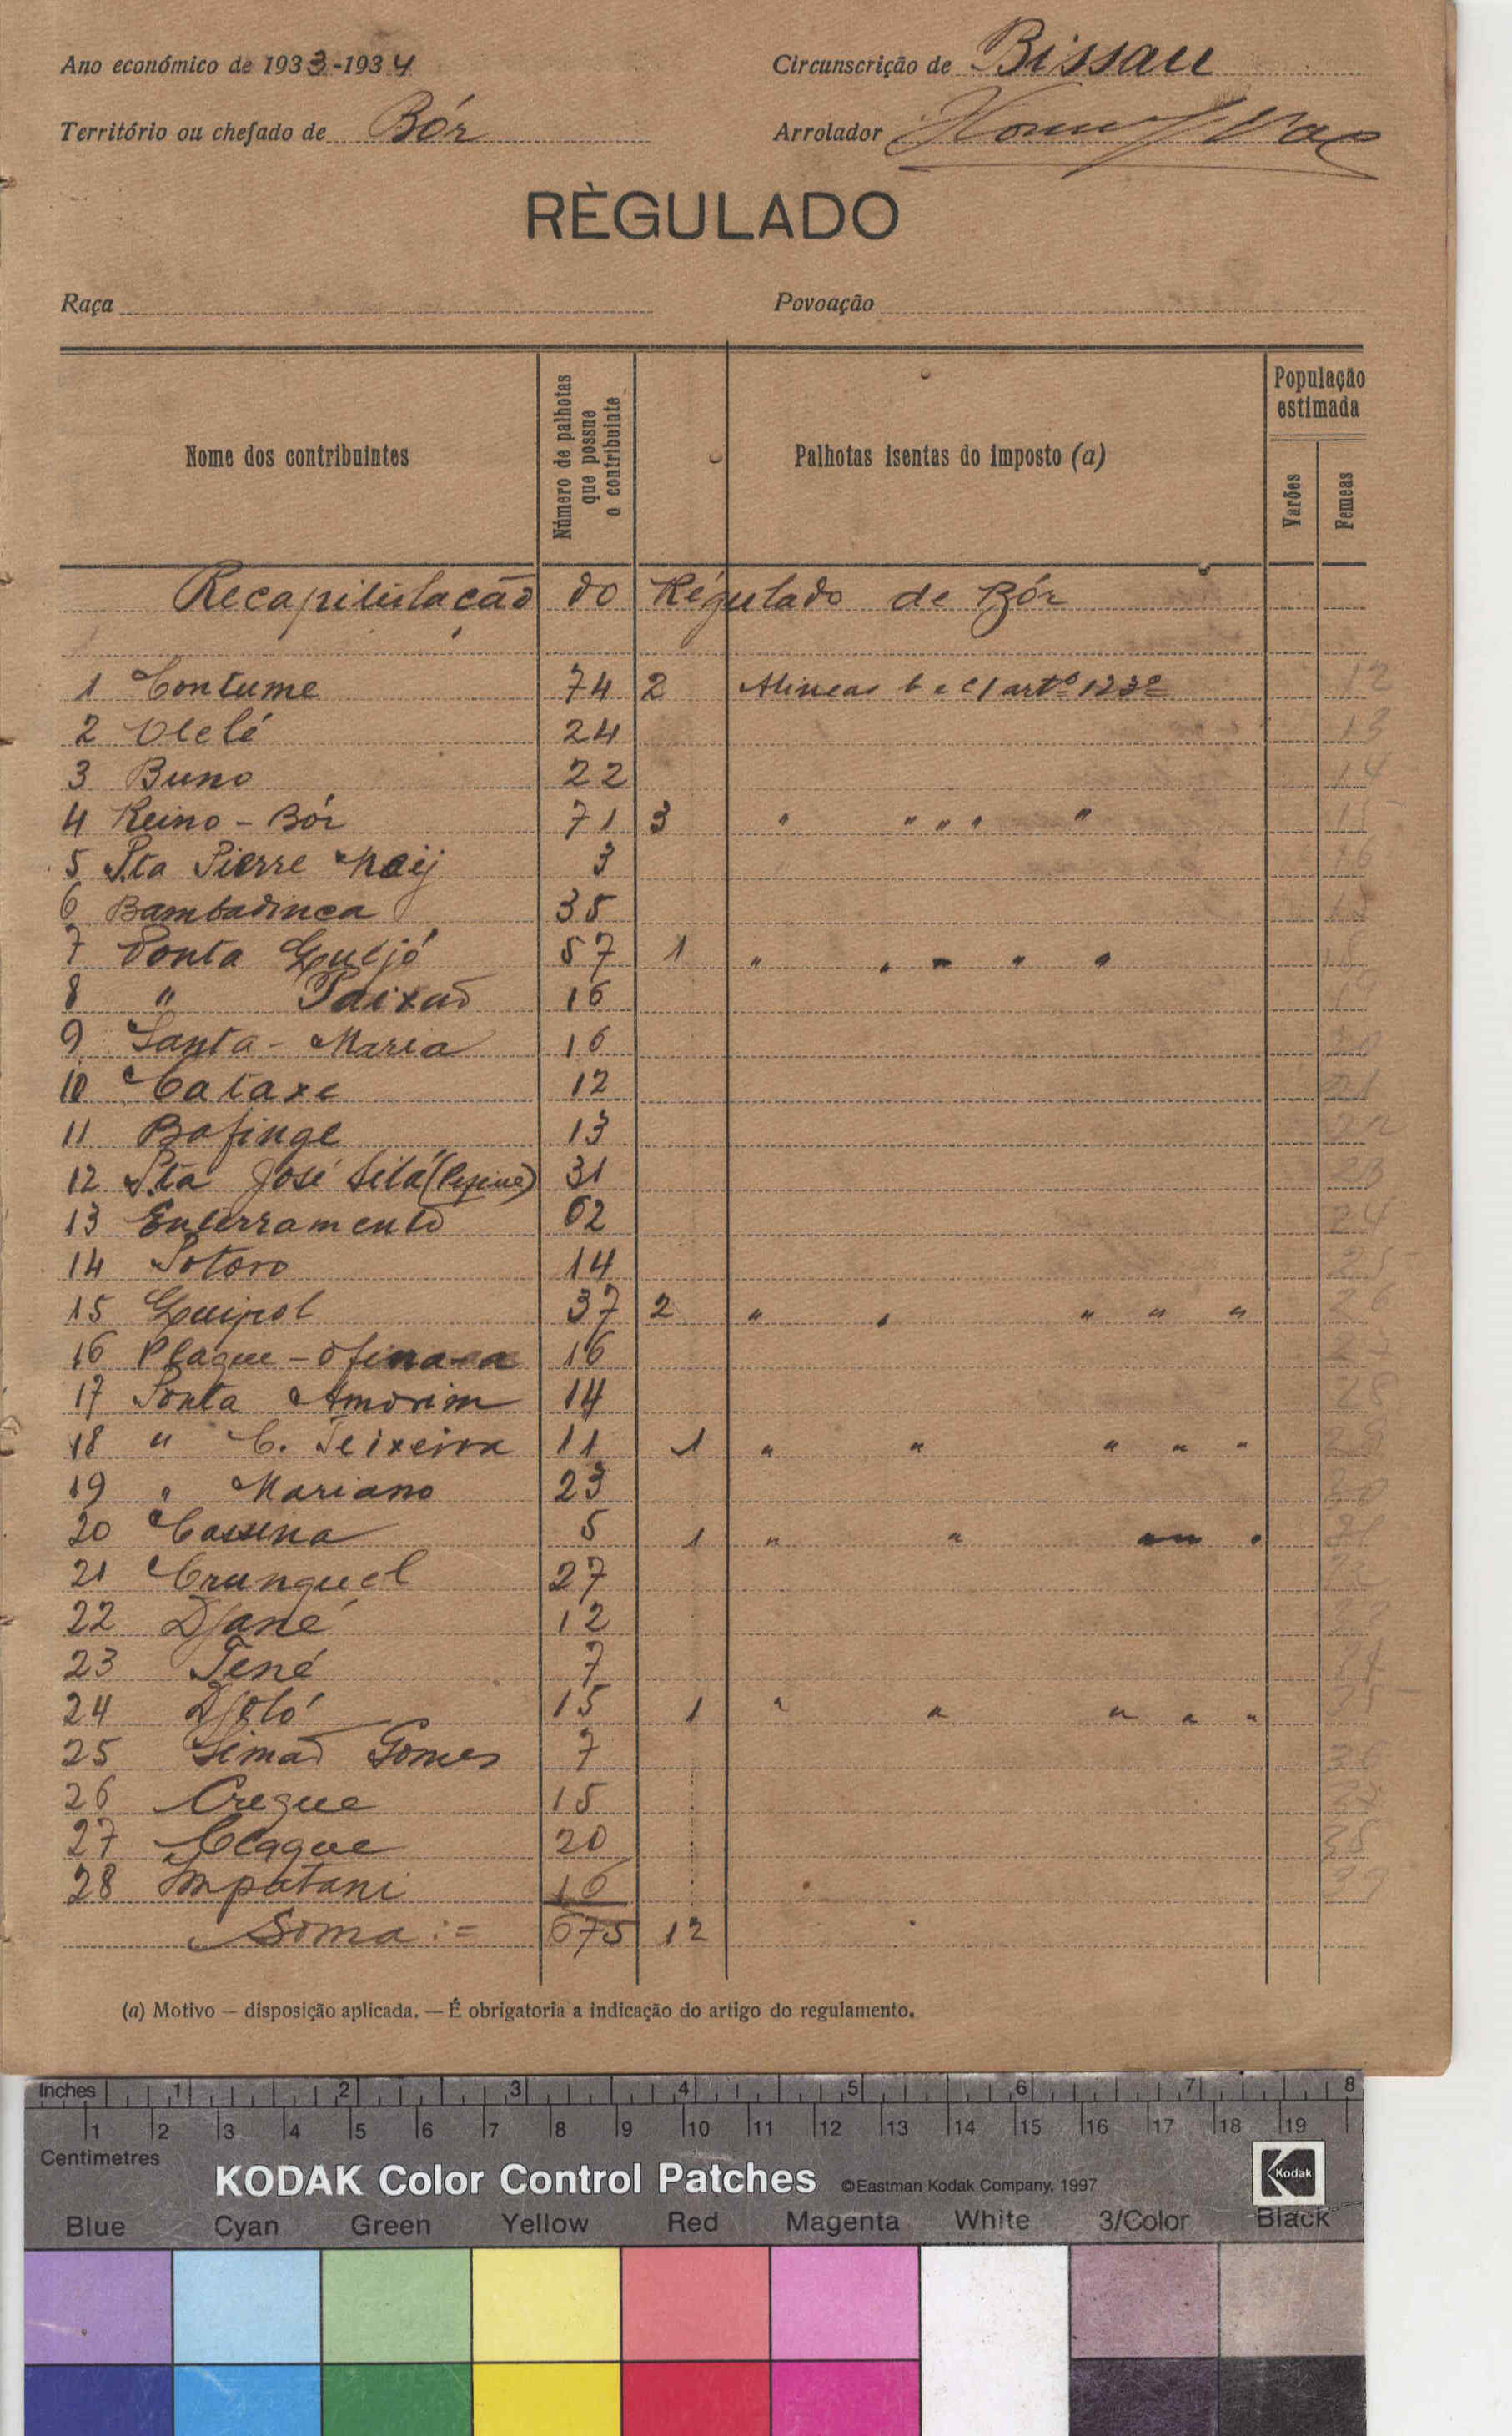 Ano económico de 1933-1934 Circunscrição de Bissau
Território ou chefado de Bór Arrolador
RÈGULADO
Raça Povoação
Nome dos contribuintes Número de palhotas que possue o contribuinte Palhotas isentas do imposto (a) População estimada Varões Femeas
Recapitulação do Régulado de Bór
1 Contume 74 2 Alineas b e c / artº 123º 12
2 Olelé 24 13
3 Buno 22 14
4 Reino - Bór 71 3 " " " " " 15
5 Pta Pierre 3 16
6 Bambadinca 35
7 Ponta Queijó 57 1 " " " " "
8 " Paixão 16 19
9 Santa - Maria 16 20
10 Cataxe 12 21
11 Bofinge 13 22
12 Pta José Silá 31 23
13 Enterramento 62 24
14 Potoro 14 25
15 Quipol 37 2 " " " " " 26
16 Plaque - 16 27
17 Ponta Amorim 14 28
18 " C. Teixeira 11 1 " " " " " 29
19 " Mariano 23 30
20 5 1 " " " " 31
21 Crunquel 27 32
22 Djané 12 33
23 Tené 7 34
24 Djoló 15 1 " " " " " 35
25 Simão Gomes 7 36
26 Creque 15 37
27 Claque 20 38
28 Impatani 16 39
Soma := 675 12
(a) Motivo — disposição aplicada. — É obrigatoria a indicação do artigo do regulamento.
Inches 1 2 3 4 5 6 7 8
1 2 3 4 5 6 7 8 9 10 11 12 13 14 15 16 17 18 19
Centimetres
KODAK Color Control Patches ©Eastman Kodak Company, 1997 Kodak
Blue Cyan Green Yellow Red Magenta White 3/Color Black